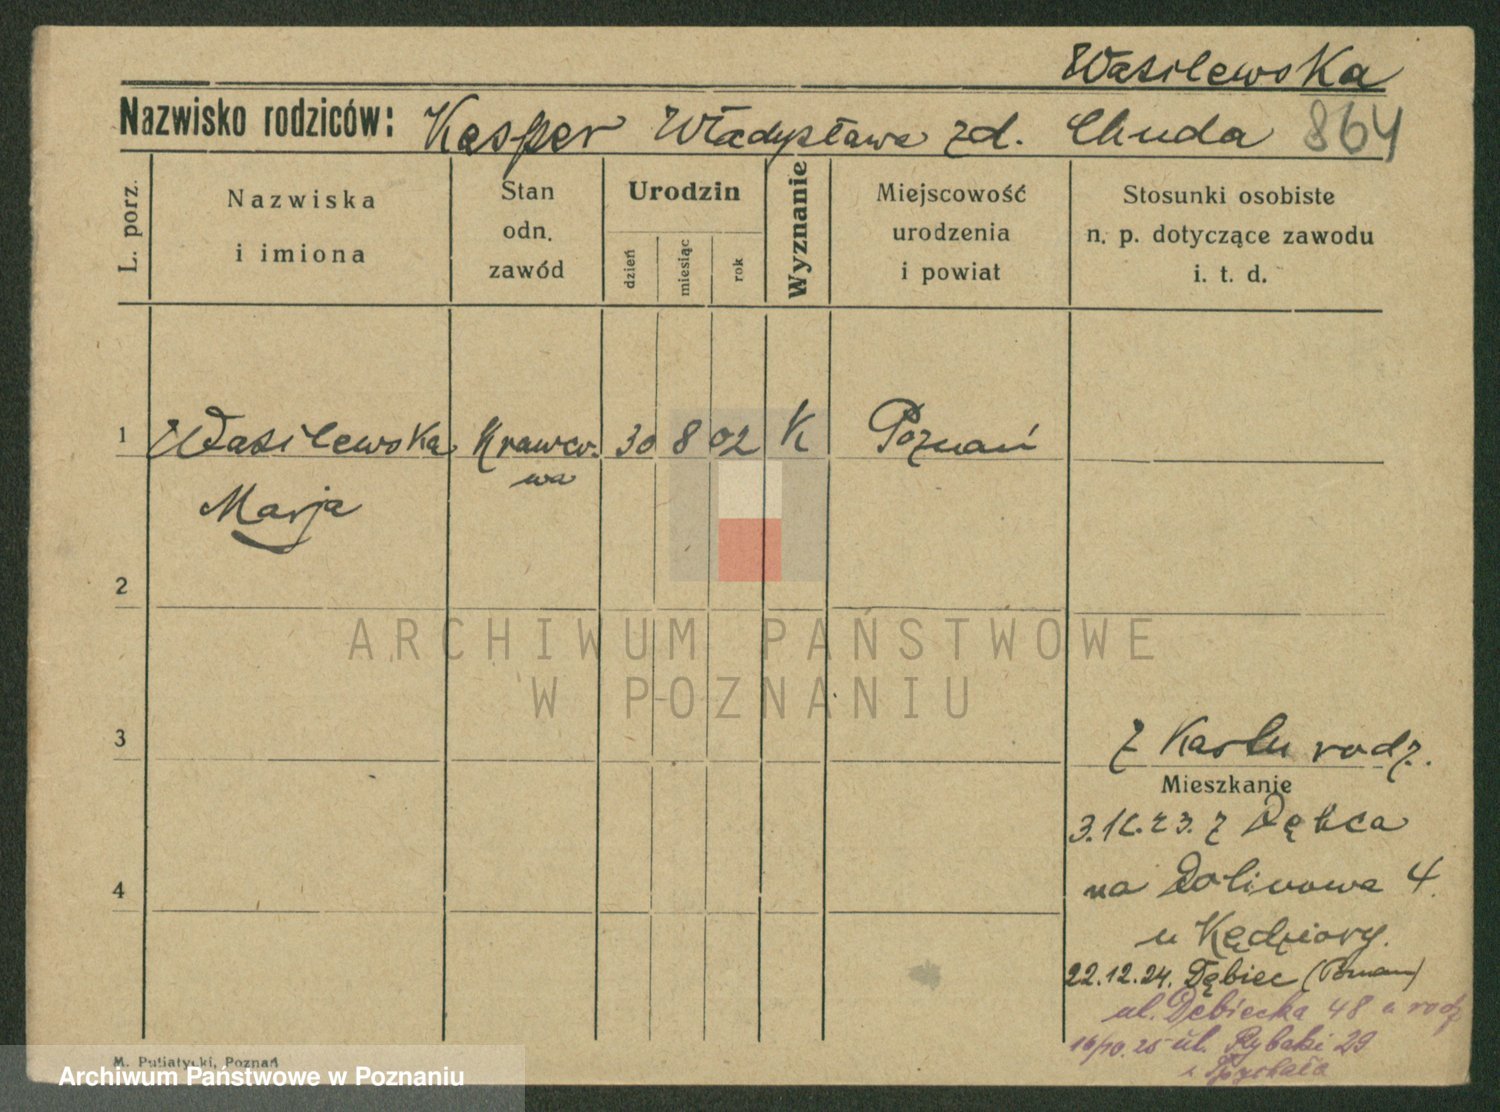 Wasilewska
Nazwisko rodziców: Kasper Władysława zd. Chuda 864
L. porz.
Nazwiska
i imiona
Stan
odn.
zawód
Urodzin
dzień
miesiąc
rok
Wyznanie
Miejscowość
urodzenia
i powiat
Stosunki osobiste
n. p. dotyczące zawodu
i. t. d.
1 Wasilewska Krawco- 30 8 02 K Poznań
wa
Marja
2
ARCHIWUM PAŃSTWOWE
W POZNANIU
3
z Karlu rodz.
Mieszkanie
z Dębca
4
na 4.
u Kędziory.
22.12.24. Dębiec (Poznań)
ul. Dębiecka 48 u rodz
16/10.25 ul. Rybaki 29
M. Putiatycki, Poznań
Archiwum Państwowe w Poznaniu